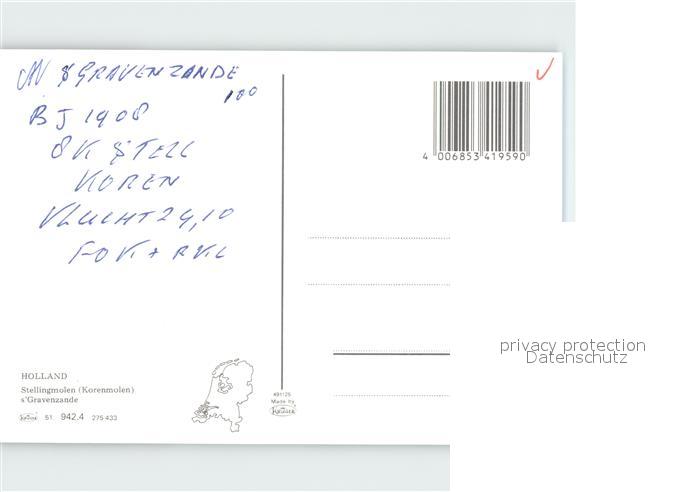 'S GRAVENZANDE
100
BJ 1908
8K STELL
KOREN
VLUCHT 24,10
FOK + RKL
4 006853 419590
HOLLAND
Stellingmolen (Korenmolen)
s'Gravenzande
51. 942.4 275 433
491/25
Made by
Krüger
privacy protection
Datenschutz